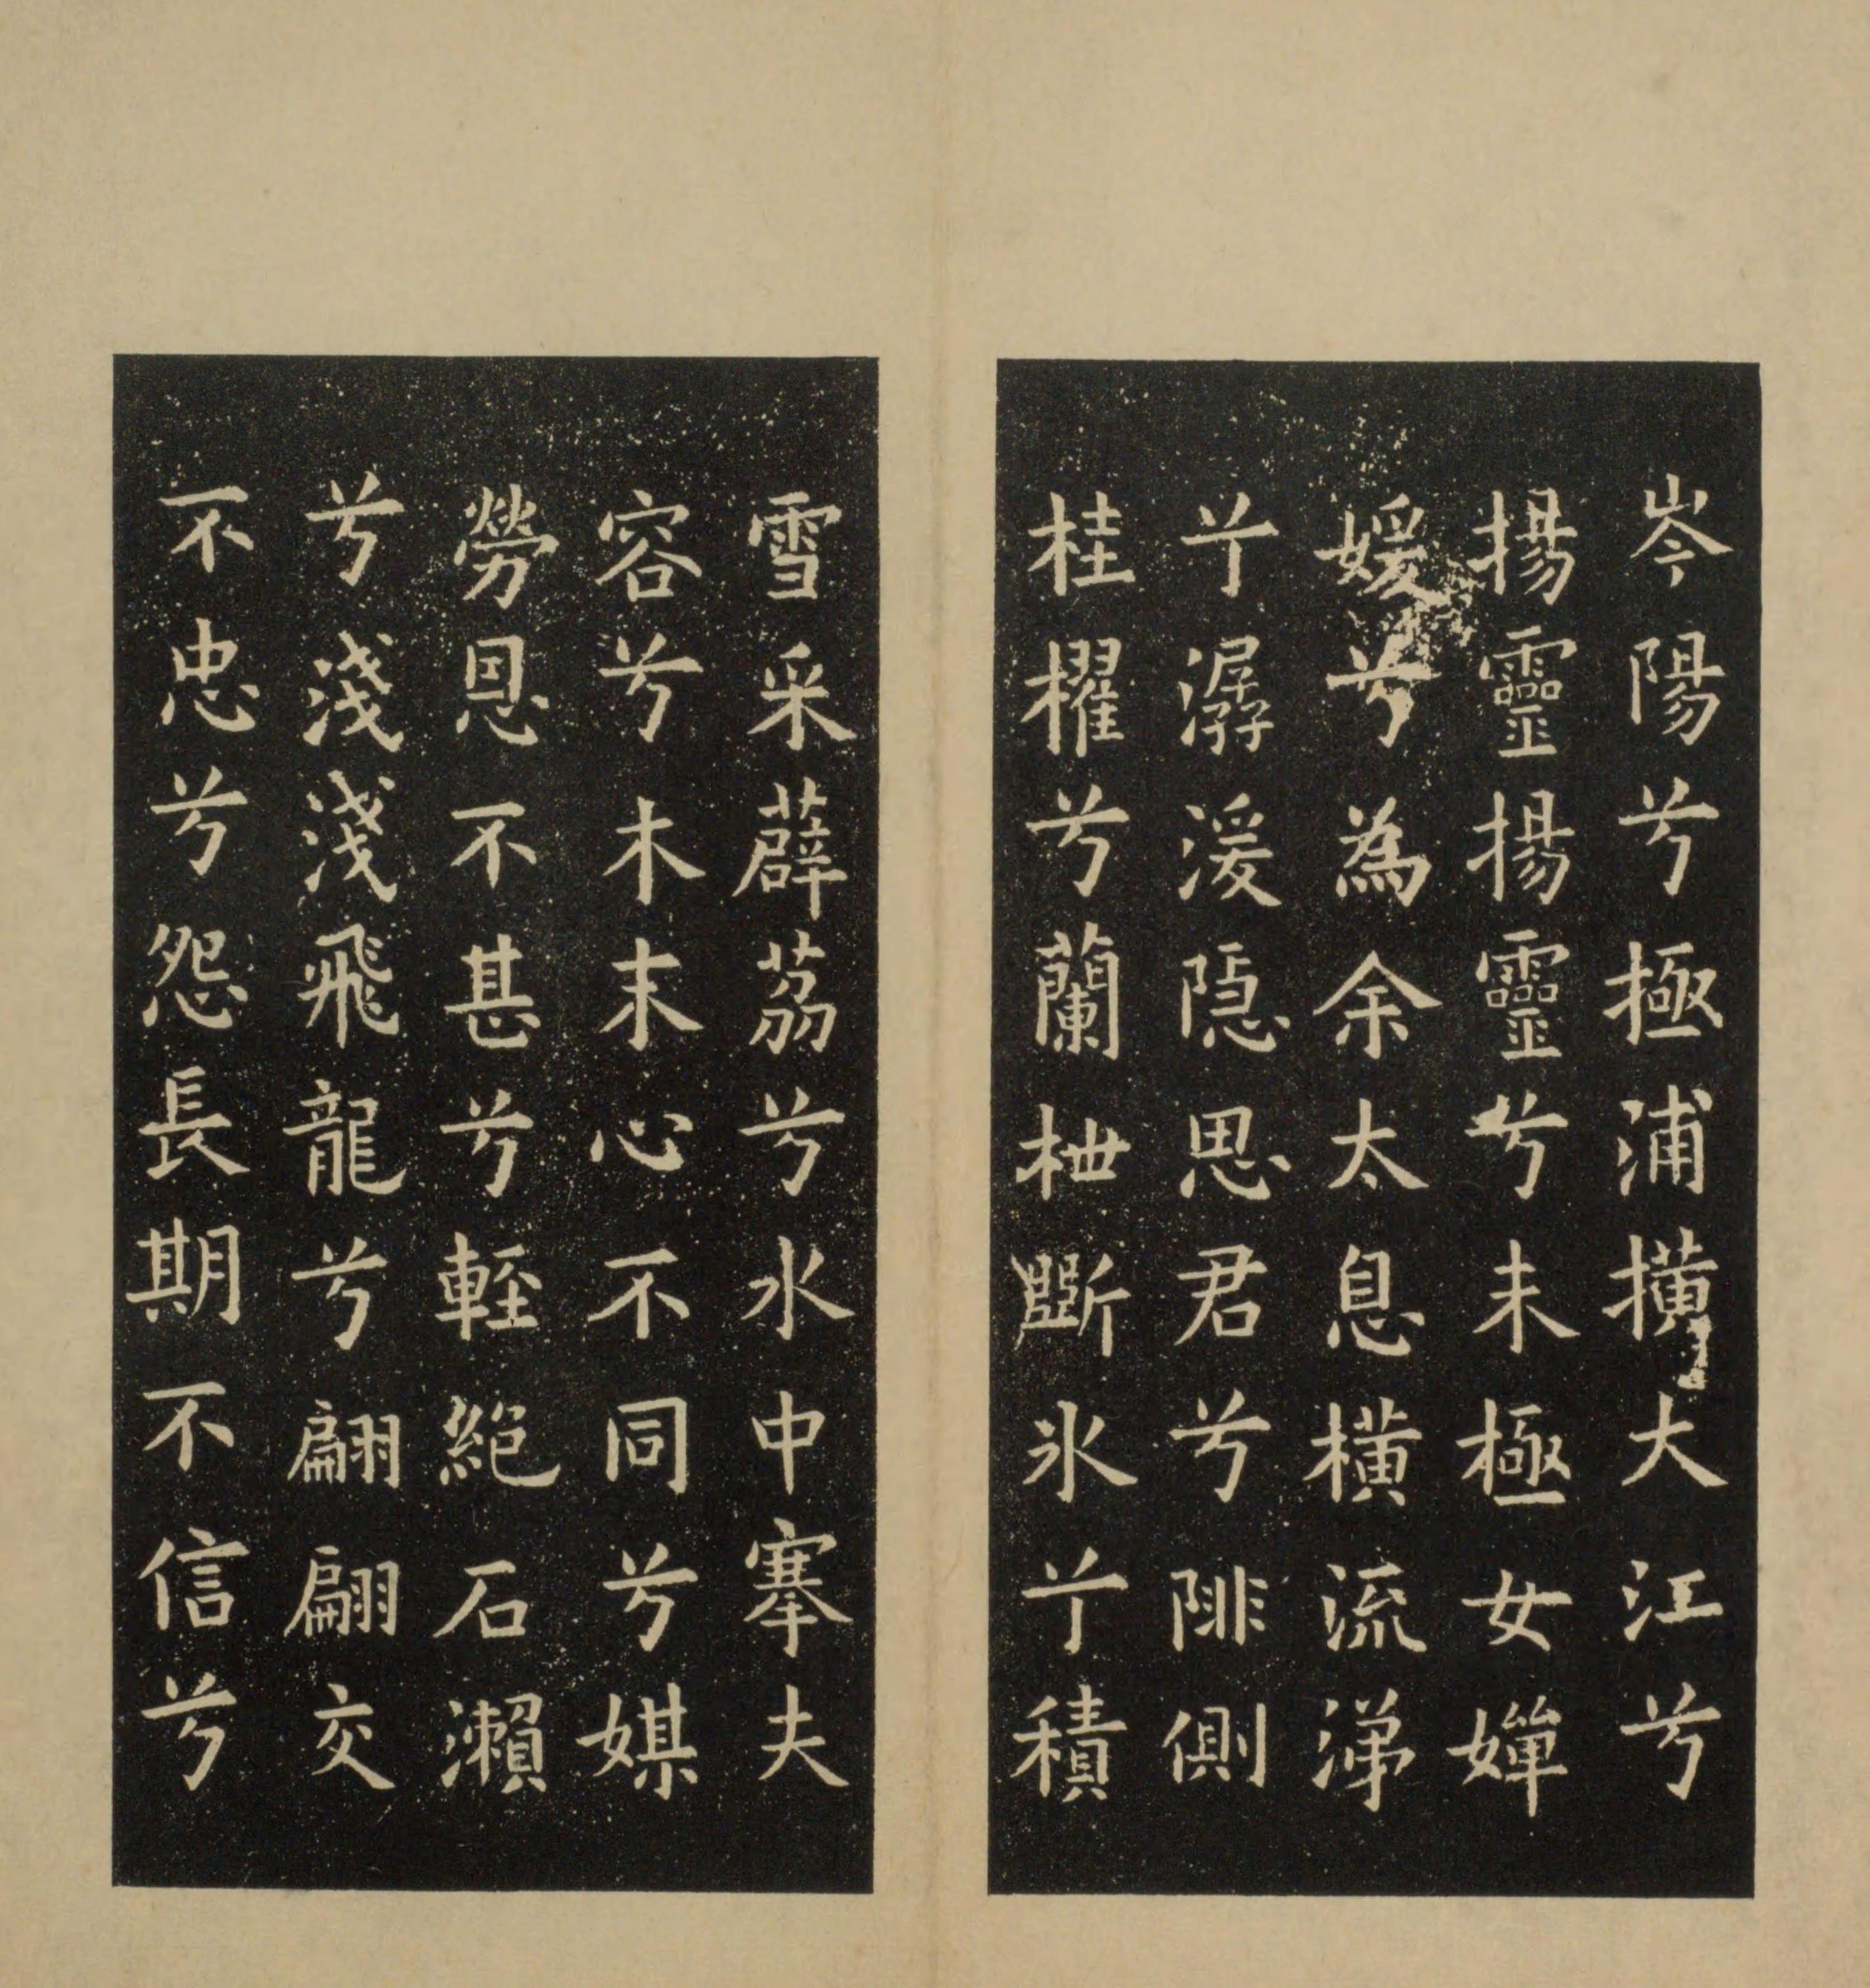 岑陽兮極浦橫大江兮
揚靈揚靈兮未極女嬋
媛兮為余太息橫流涕
兮潺湲隱思君兮陫側
桂櫂兮蘭枻斲氷兮積
雪采薜荔兮水中搴夫
容兮木末心不同兮媒
勞恩不甚兮輕絕石瀨
兮淺淺飛龍兮翩翩交
不忠兮怨長期不信兮